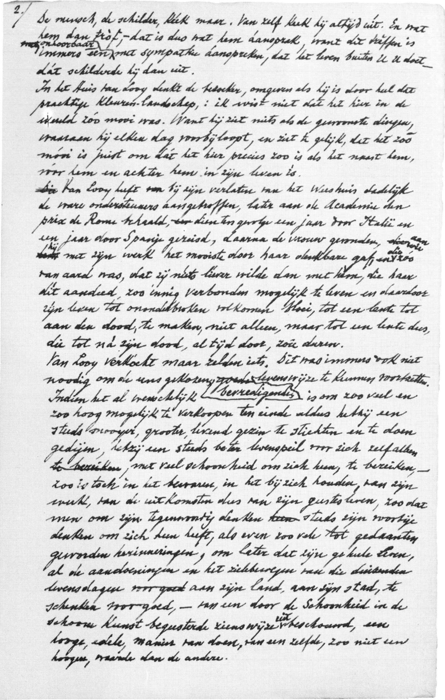 2./
De mensch, de schilder, keek maar. Van zelf keek hij altijd uit. En wat
hem dan trof, - dat is dus wat hem aansprak, want dit treffen is
immers een onhoorbaar met sympathie aanspreken, dat het leven buiten U U doet -
dát schilderde hij dan uit.
In het huis van Looy denkt de bezoeker, omgeven als hij is door heel dit
prachtige kleuren-landschap, : ik wist niet dat het hier in de
wereld zóo mooi was. Want hij ziet niets als de gewoonste dingen,
waaraan hij elken dag voorbij loopt, en ziet te gelijk, dat het zóo
mooi is juist om dát het hier precies zoo is als het naast hem,
vóor hem en achter hem in zijn leven is.
Van Looy heeft bij zijn verlaten van het Weeshuis dadelijk
de ware ondersteuners aangetroffen, later aan de Academie den
prix de Rome behaald, dientengevolge een jaar door Italië en
een jaar door Spanje gereisd, daarna de vrouw gevonden, die aan
hij met zijn werk het mooiste door haar denkbare gaf en die zóo
van aard was, dat zij niets liever wilde dan met hem, die haar
dit aandeed, zoo innig verbonden mogelijk te leven en daardoor
zijn leven tot ononderbroken volkomen bloei, tot een lente tot
aan den dood, te maken, niet alleen, maar tot een lente dus,
die tot ná zijn dood, altijd door, zoû duren.
Van Looy verkocht maar zelden iets. Dit was immers ook niet
noodig om de eens gekozen levenswijze te kunnen voortzetten.
Indien het al menschelijk bevredigender is om zoo veel en
zoo hoog mogelijk te verkoopen ten einde aldus hetzij een
steeds grooter levend gezin te stichten en te doen
gedijen, hetzij een steeds beter levenspeil voor zich zelf alleen
te bereiken, met veel schoonheid om zich heen, te bereiken, -
zoo is toch in het bewaren, in het bijzich houden, van zijn
werk, van de uitkomsten dus van zijn geestesleven, zoo dat
men om zijn tegenwoordig denken steeds zijn voorbije
denken om zich heen heeft, als even zoo vele tot gedaanten
geworden herinneringen, om later dat zijn geheele leven,
al de aandoeningen in het zielbewegen van die duizenden
levensdagen voor goed aan zijn land, aan zijn stad, te
schenken voor goed, - van een door de Schoonheid in de
schoone Kunst begeesterde zienswijze uit beschouwd, een
hooge, edele, manier van doen, van een zelfde, zoo niet een
hoogere, waarde dan de andere.